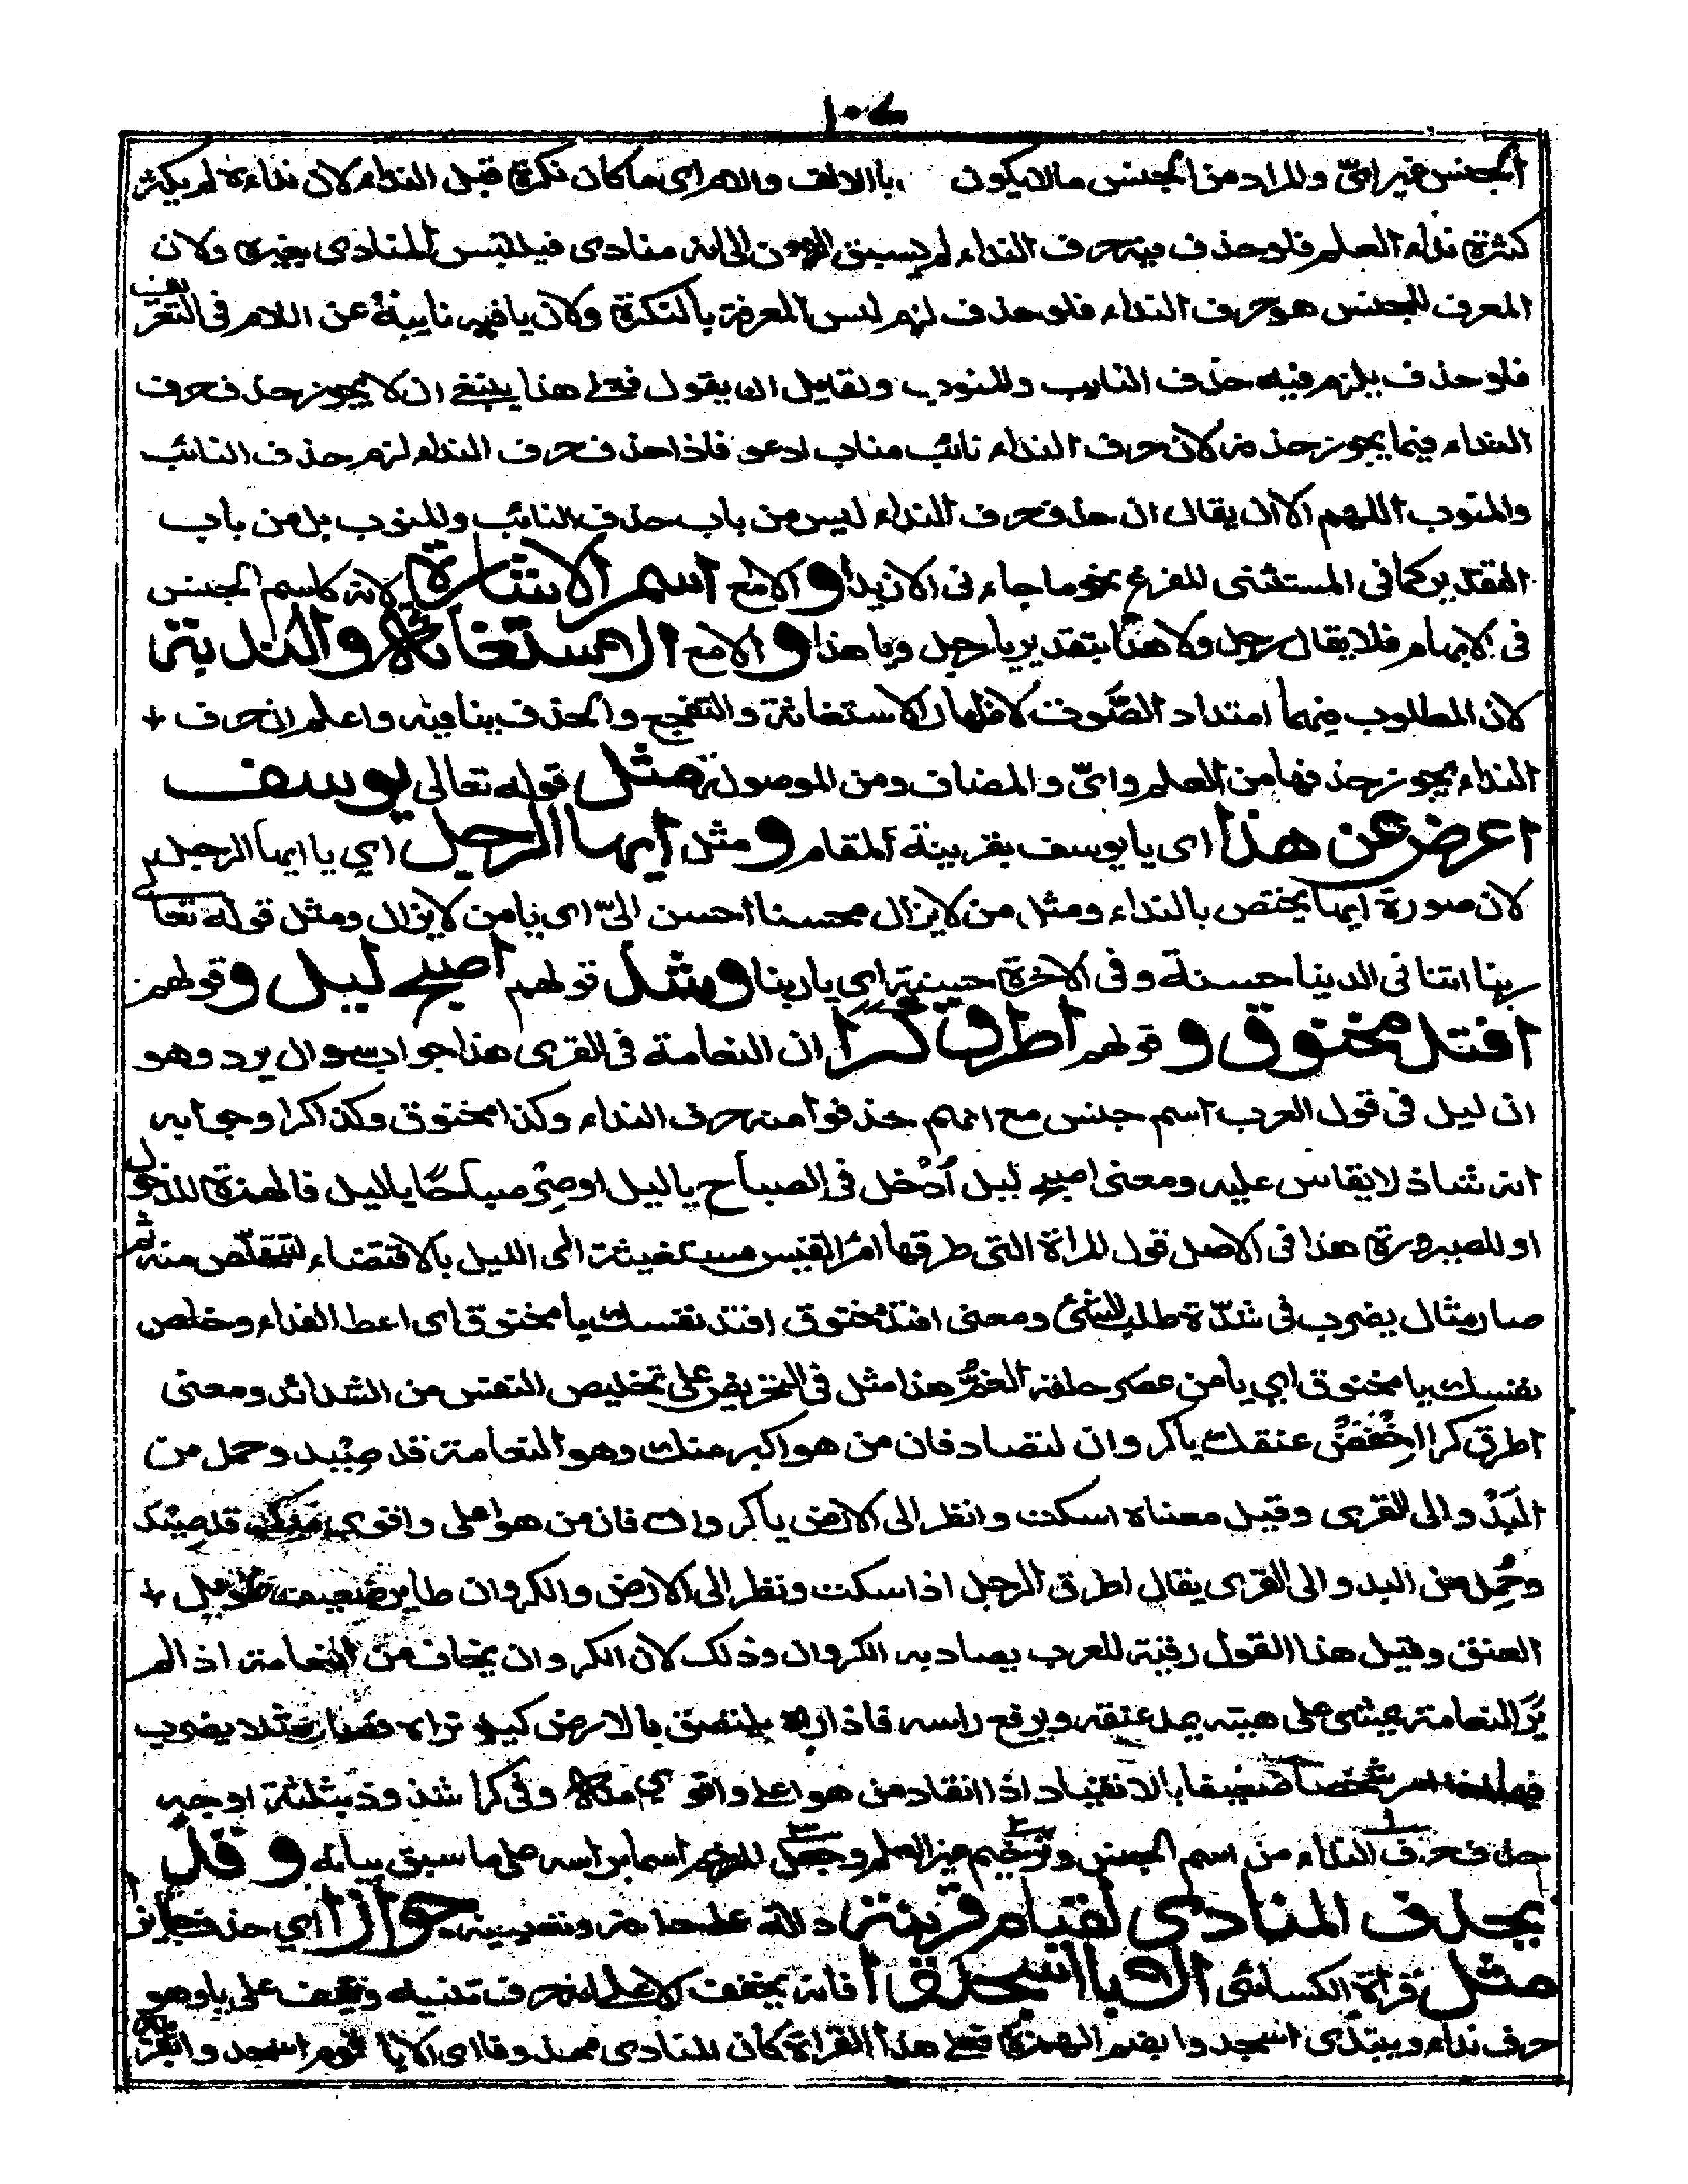 ١٠٤
الجنس غير اىّ والمراد من الجنس ما لا يكون بالالف واللام اى ما كان نكرة قبل النداء لان نداءه لم يكثر
كثرة نداء العلم فلو حذف منه حرف النداء لم يسبق الذهن الى انه منادى فيلتبس المنادى بغيره ولان
المعرف للجنس هو حرف النداء فلو حذف لزم لبس المعرفة بالنكرة ولان يا فيه نايبة عن اللام فى التعريف
فلو حذف يلزم فيه حذف النايب والمنوب ولقايل ان يقول فعلى هذا ينبغى ان لا يجوز حذف حرف
النداء فيما يجوز حذفه لان حرف النداء نائب مناب ادعو فاذا حذف حرف النداء لزم حذف النائب
والمنوب اللهم الا ان يقال ان حذف حرف النداء ليس من باب حذف النائب والمنوب بل من باب
التقدير كما فى المستثنى المفرغ نحو ما جاءنى الا زيد او الا مع اسم الاشارة لانه كاسم الجنس
فى الابهام فلا يقال رجل ولا هذا بتقدير يا رجل ويا هذا و الا مع الاستغاثة والندبة
لان المطلوب فيهما امتداد الصَّوت لاظهار الاستغاثة والتفجع والحذف ينافيه واعلم ان حرف
النداء يجوز حذفها من العلم واىّ والمضاف ومن الموصولة مثل قوله تعالى يوسف
اعرض عن هذا اى يا يوسف بقرينة المقام و مثل ايها الرجل اي يا ايها الرجل
لان صورة ايها يختص بالنداء ومثل من لا يزال محسنا احسن الىّ اى يا من لا يزال ومثل قوله تعا
ربنا اتنا فى الدنيا حسنة وفى الاخرة حسنة اى يا ربنا وشذ قولهم اصبح ليل و قولهم
افتد مخنوق و قولهم اطرق كرا ان النعامة فى القرى هذا جواب سوال يرد وهو
ان ليل فى قول العرب اسم جنس مع انهم حذفوا منه حرف النداء وكذا مخنوق وكذا كرا وجوابه
انه شاذ لا يقاس عليه ومعنى اصبح ليل اُدْخل فى الصباح يا ليل او صِرْ صباحًا يا ليل فالهمزة للدخول
او للصيرورة هذا فى الاصل قول المراة التى طرقها امرُ القيس مستغيثة الى الليل بالاقتضاء لتتخلّص منه ثم
صار مثال يضرب فى شدّة طلب الشئ ومعنى افتد مخنوق افتد نفسك يا مخنوق اى اعط الفداء وخلص
نفسك يا مخنوق اي يا من عصر حلقه الغمُّ هذا مثل فى التحريض على تخليص النفس من الشدائد ومعنى
اطرق كرا اخْفضْ عنقك يا كروان لتصاد فان من هو اكبر منك وهو النعامة قد صِيْد وحمل من
البَدْو الى القرى وقيل معناه اسكت وانظر الى الارض يا كروان فان من هو اعلى واقوي منك قد صِيْد
وحُمِل من البدو الى القرى يقال اطرق الرجل اذا اسكت ونظر الى الارض والكروان طاير ضعيف طويل
العنق وقيل هذا القول رقية للعرب يصاد به الكروان وذلك لان الكروان يخاف من النعامة اذا لم
يَرَ النعامة يمشى على هيبته يمد عنقه ويرفع راسه فاذا راه يلتصق بالارض كيلا تراه فصار مثلا يضرب
شخصا ضعيفا بالانقياد اذا انقاد من هو اعلى واقوي منك وفى كرا شذوذ بثلثة اوجه
حذف حرف النداء من اسم الجنس وترخيم غير العلم وجعل المرخم اسما براسه على ما سبق بيانه و قد
يحذف المنادى لقيام قرينة دالة على حذفه وتعيينه جوازا اي حذفا جايزا
مثل قراة الكسائى الا يا اسجدوا فانه يخفف الا على انه حرف تنبيه ويقف على يا وهو
حرف نداء ويبتدى اسجدوا بضم الهمزة فعلى هذا القراة كان المنادى محذوفا اى الا يا قوم اسجدوا